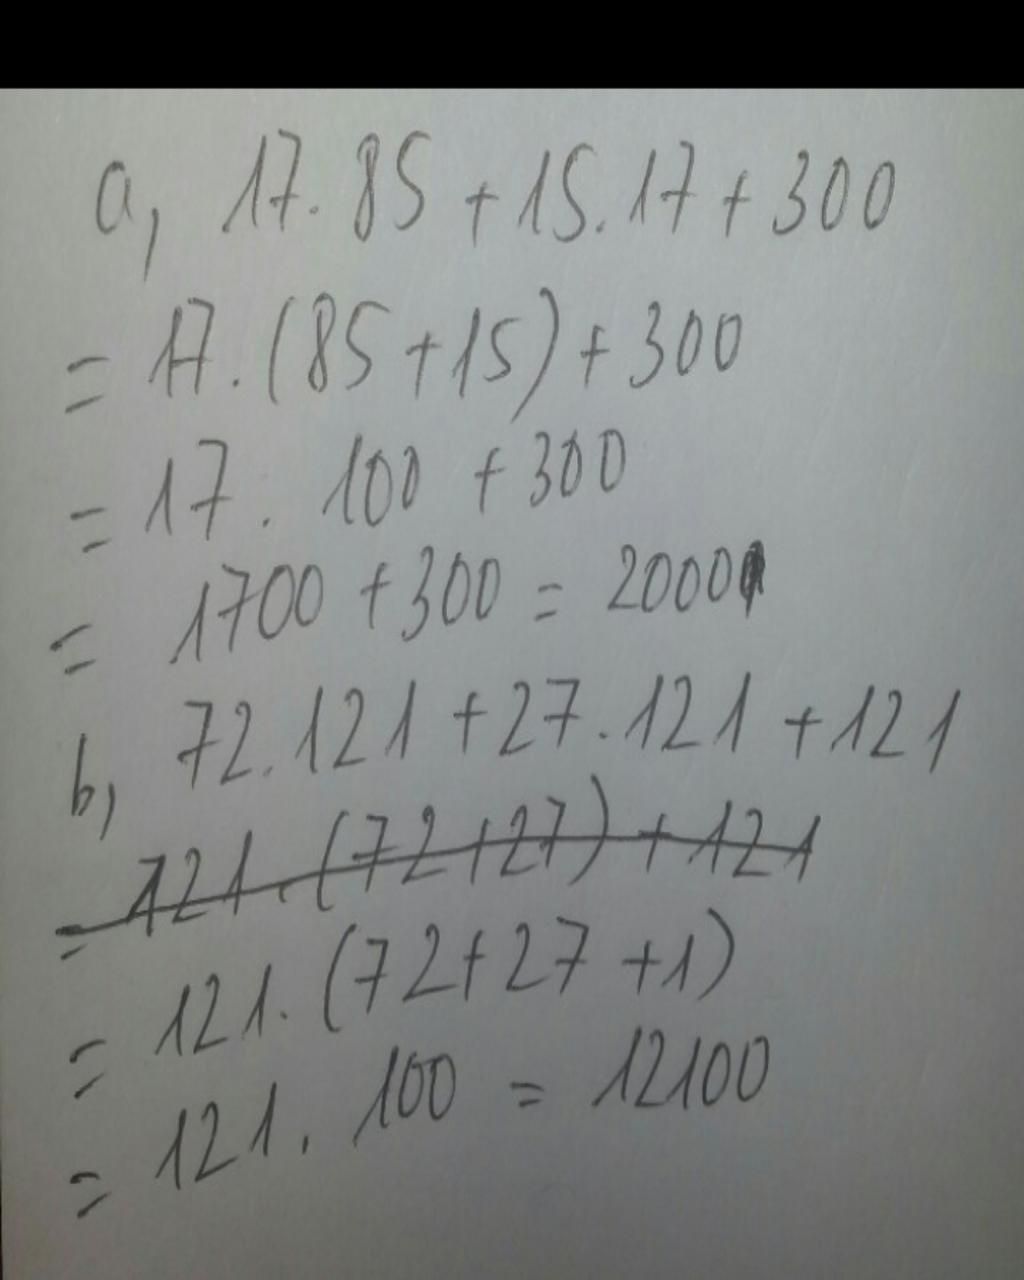 a, 17.85+15.17+300
= 17.(85+15)+300
= 17. 100 +300
= 1700 +300 = 2000
b, 72.121+27.121+121
= 121.(72+27)+121
= 121.(72+27+1)
= 121. 100 = 12100